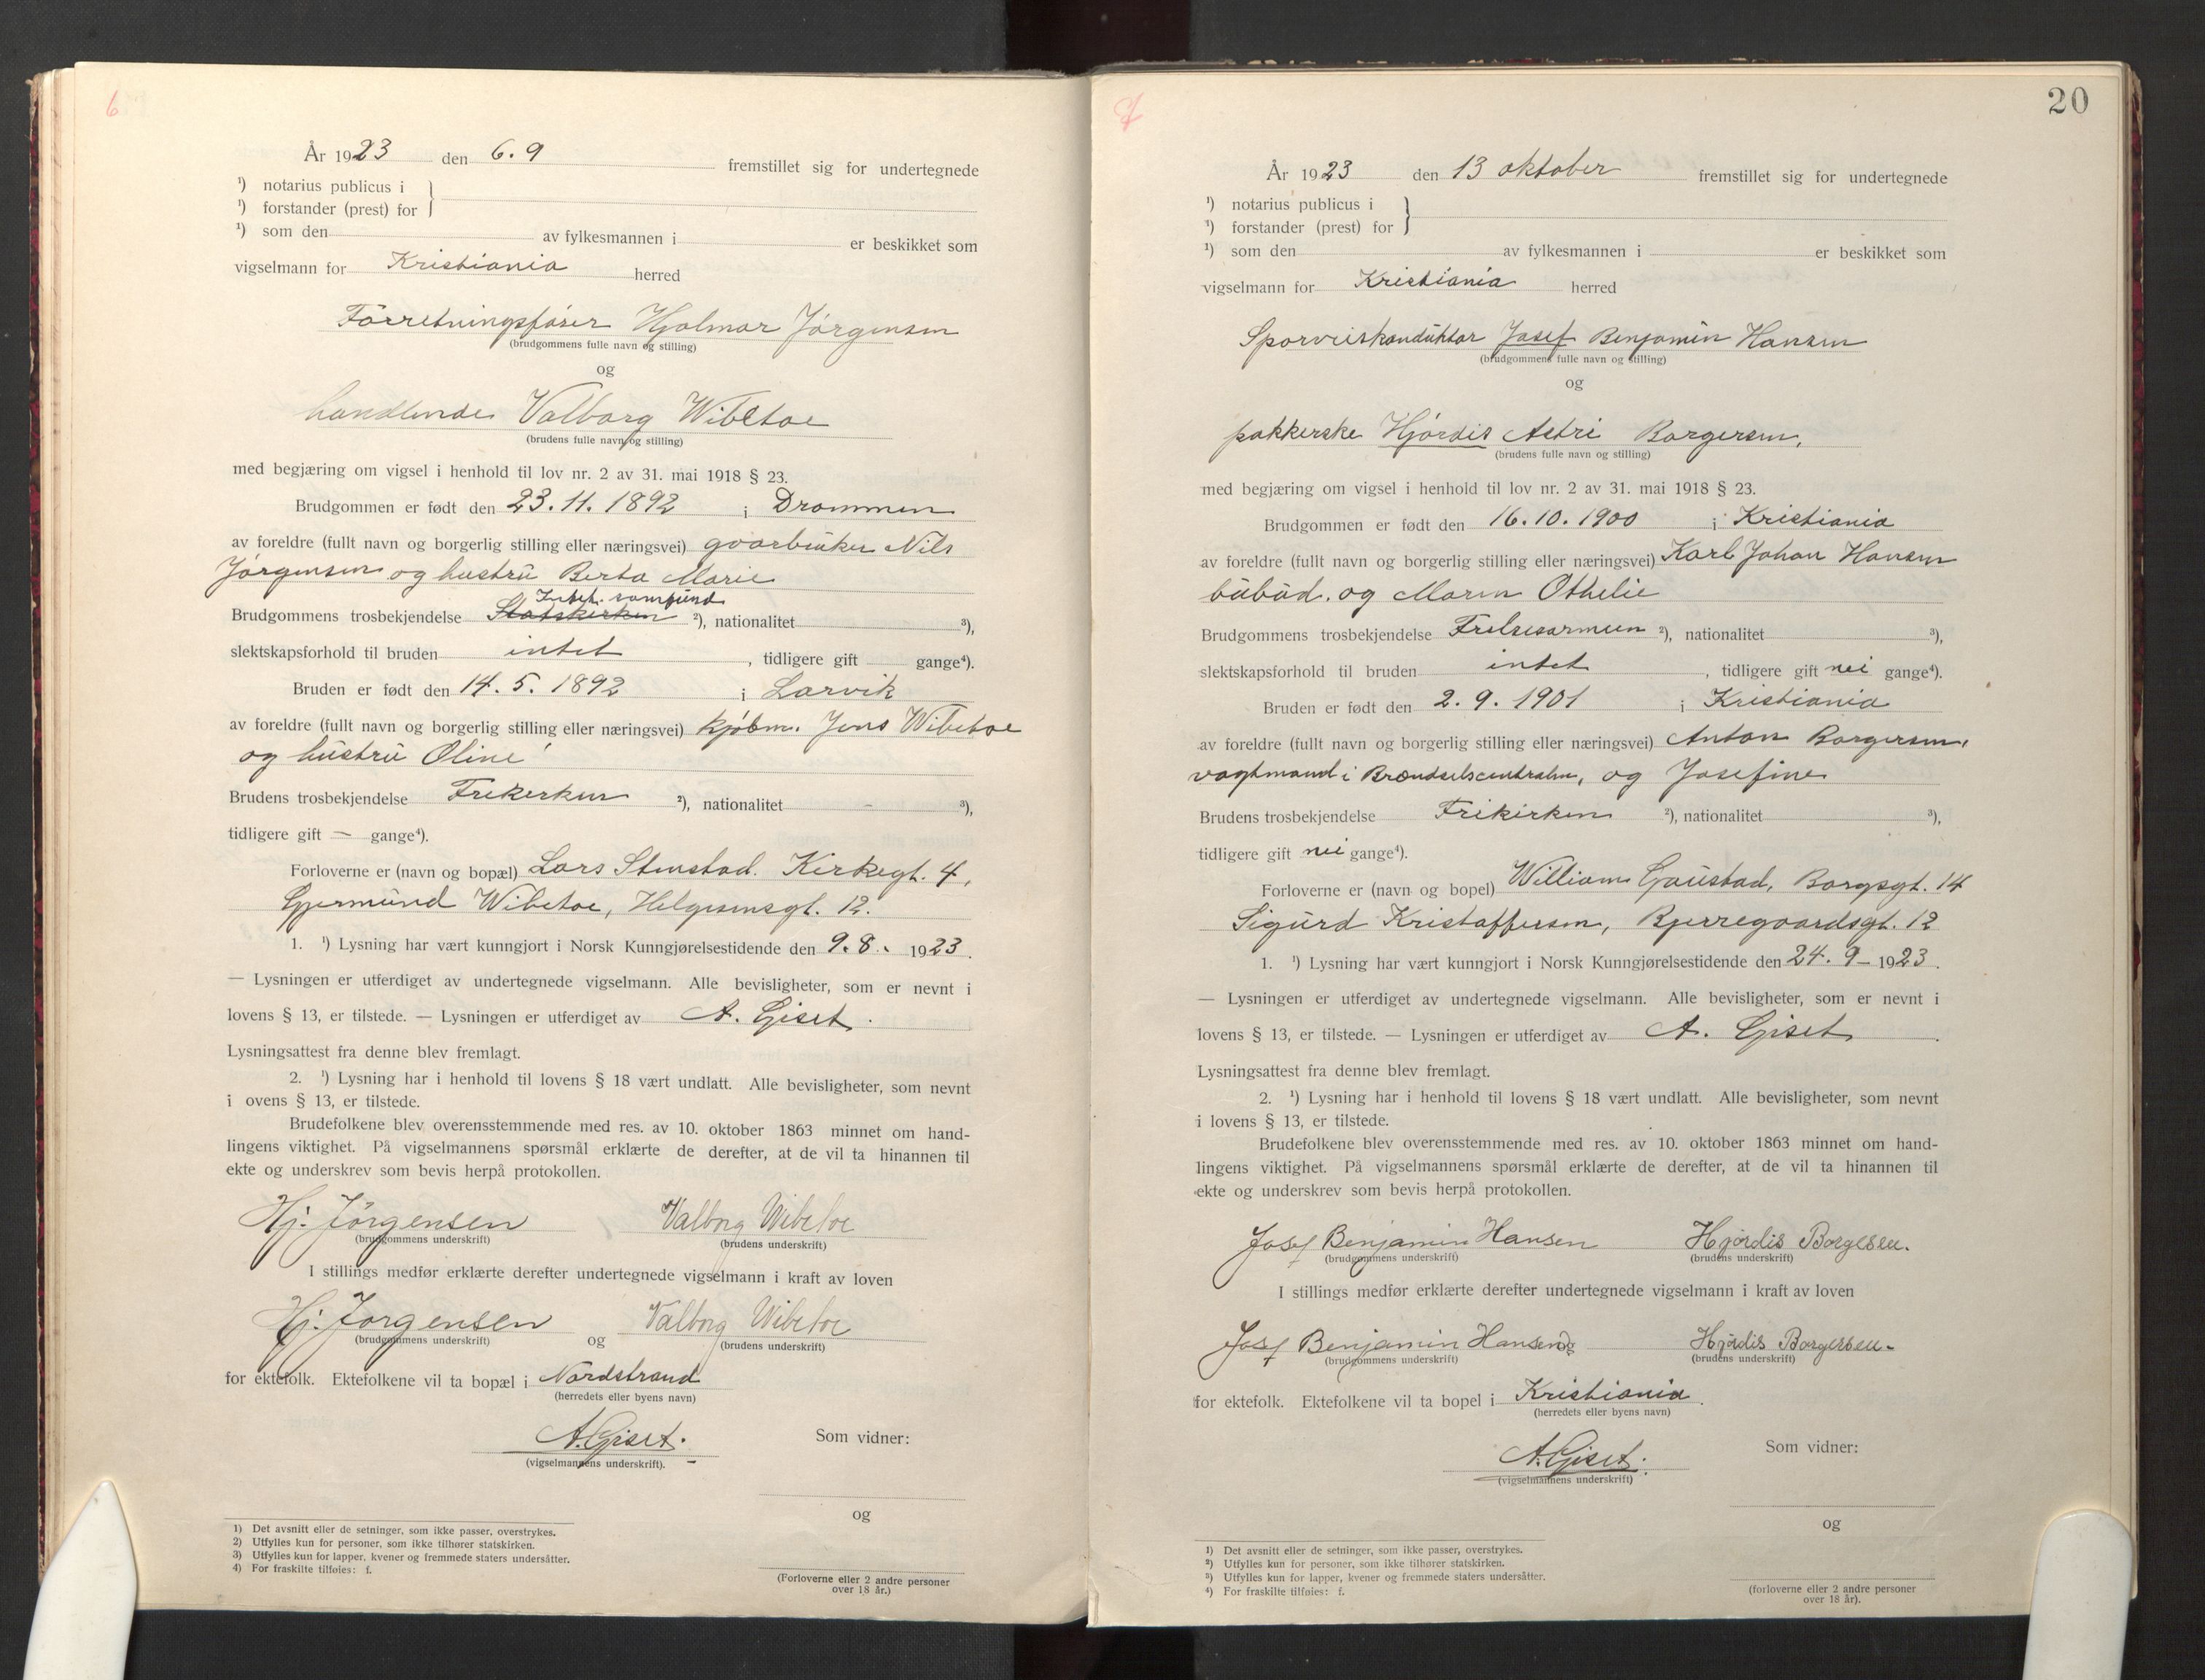 6
År 1923 den 6.9 fremstillet sig for undertegnede
¹) notarius publicus i
¹) forstander (prest) for
¹) som den av fylkesmannen i er beskikket som
vigselmann for Kristiania herred
Forretningsfører Hjalmar Jørgensen
(brudgommens fulle navn og stilling)
og
handlende Valborg Wibetoe
(brudens fulle navn og stilling)
med begjæring om vigsel i henhold til lov nr. 2 av 31. mai 1918 § 23.
Brudgommen er født den 23.11.1892 i Drammen
av foreldre (fullt navn og borgerlig stilling eller næringsvei) gaarbruker Nils
Jørgensen og hustru Berta Marie
samfund
Brudgommens trosbekjendelse Statskirken ²), nationalitet ³),
slektskapsforhold til bruden intet, tidligere gift gange⁴).
Bruden er født den 14.5.1892 i Larvik
av foreldre (fullt navn og borgerlig stilling eller næringsvei) kjøbm. Jens Wibetoe
og hustru Oline
Brudens trosbekjendelse Frikirken ²), nationalitet - ³),
tidligere gift — gange⁴).
Forloverne er (navn og bopæl) Lars Stenstad. Kirkegt. 4,
Gjermund Wibetoe, Helgesensgt. 12.
1. ¹) Lysning har vært kunngjort i Norsk Kunngjørelsestidende den 9.8. 1923.
— Lysningen er utferdiget av undertegnede vigselmann. Alle bevisligheter, som er nevnt i
lovens § 13, er tilstede. — Lysningen er utferdiget av A. Giset.
Lysningsattest fra denne blev fremlagt.
2. ¹) Lysning har i henhold til lovens § 18 vært undlatt. Alle bevisligheter, som nevnt
i ovens § 13, er tilstede.
Brudefolkene blev overensstemmende med res. av 10. oktober 1863 minnet om hand-
lingens viktighet. På vigselmannens spørsmål erklærte de derefter, at de vil ta hinannen til
ekte og underskrev som bevis herpå protokollen.
Hj. Jørgensen Valborg Wibetoe
(brudgommens underskrift) (brudens underskrift)
I stillings medfør erklærte derefter undertegnede vigselmann i kraft av loven
Hj. Jørgensen og Valborg Wibetoe
(brudgommens underskrift) (brudens underskrift)
for ektefolk. Ektefolkene vil ta bopæl i Nordstrand
(herredets eller byens navn)
A. Giset.
(vigselmannens underskrift).
Som vidner:
og
1) Det avsnitt eller de setninger, som ikke passer, overstrykes.
2) Utfylles kun for personer, som ikke tilhører statskirken.
3) Utfylles kun for lapper, kvener og fremmede staters undersåtter.
4) For fraskilte tilføies: f.
(Forloverne eller 2 andre personer
over 18 år.)
20
År 1923 den 13 oktober fremstillet sig for undertegnede
¹) notarius publicus i
¹) forstander (prest) for
¹) som den av fylkesmannen i er beskikket som
vigselmann for Kristiania herred
Sporveiskonduktør Josef Benjamin Hansen
(brudgommens fulle navn og stilling)
og
pakkerske Hjørdis Astri Borgersen,
(brudens fulle navn og stilling)
med begjæring om vigsel i henhold til lov nr. 2 av 31. mai 1918 § 23.
Brudgommen er født den 16.10.1900 i Kristiania
av foreldre (fullt navn og borgerlig stilling eller næringsvei) Karl Johan Hansen
bübud. og Maren Othelie
Brudgommens trosbekjendelse Frelsesarmeen ²), nationalitet ³),
slektskapsforhold til bruden intet, tidligere gift nei gange⁴).
Bruden er født den 2.9.1901 i Kristiania
av foreldre (fullt navn og borgerlig stilling eller næringsvei) Anton Borgersen,
vagtmand i Brændselscentralen, og Josefine
Brudens trosbekjendelse Frikirken ²), nationalitet ³),
tidligere gift nei gange⁴).
Forloverne er (navn og bopel) William Gaustad, Borgsgt. 14
Sigurd Kristoffersen, Bjerregaardsgt. 12
1. ¹) Lysning har vært kunngjort i Norsk Kunngjørelsestidende den 24.9 - 1923.
— Lysningen er utferdiget av undertegnede vigselmann. Alle bevisligheter, som er nevnt i
lovens § 13, er tilstede. — Lysningen er utferdiget av A. Giset.
Lysningsattest fra denne blev fremlagt.
2. ¹) Lysning har i henhold til lovens § 18 vært undlatt. Alle bevisligheter, som nevnt
i lovens § 13, er tilstede.
Brudefolkene blev overensstemmende med res. av 10. oktober 1863 minnet om hand-
lingens viktighet. På vigselmannens spørsmål erklærte de derefter, at de vil ta hinannen til
ekte og underskrev som bevis herpå protokollen.
Josef Benjamin Hansen Hjørdis Borgesen.
(brudgommens underskrift) (brudens underskrift)
I stillings medfør erklærte derefter undertegnede vigselmann i kraft av loven
Josef Benjamin Hansen og Hjørdis Borgersen.
(brudgommens underskrift) (brudens underskrift)
for ektefolk. Ektefolkene vil ta bopel i Kristiania.
(herredets eller byens navn)
A. Giset.
(vigselmannens underskrift)
Som vidner:
og
¹) Det avsnitt eller de setninger, som ikke passer, overstrykes.
²) Utfylles kun for personer, som ikke tilhører statskirken.
³) Utfylles kun for lapper, kvener og fremmede staters undersåtter.
⁴) For fraskilte tilføies: f.
(forloverne eller 2 andre personer
over 18 år).